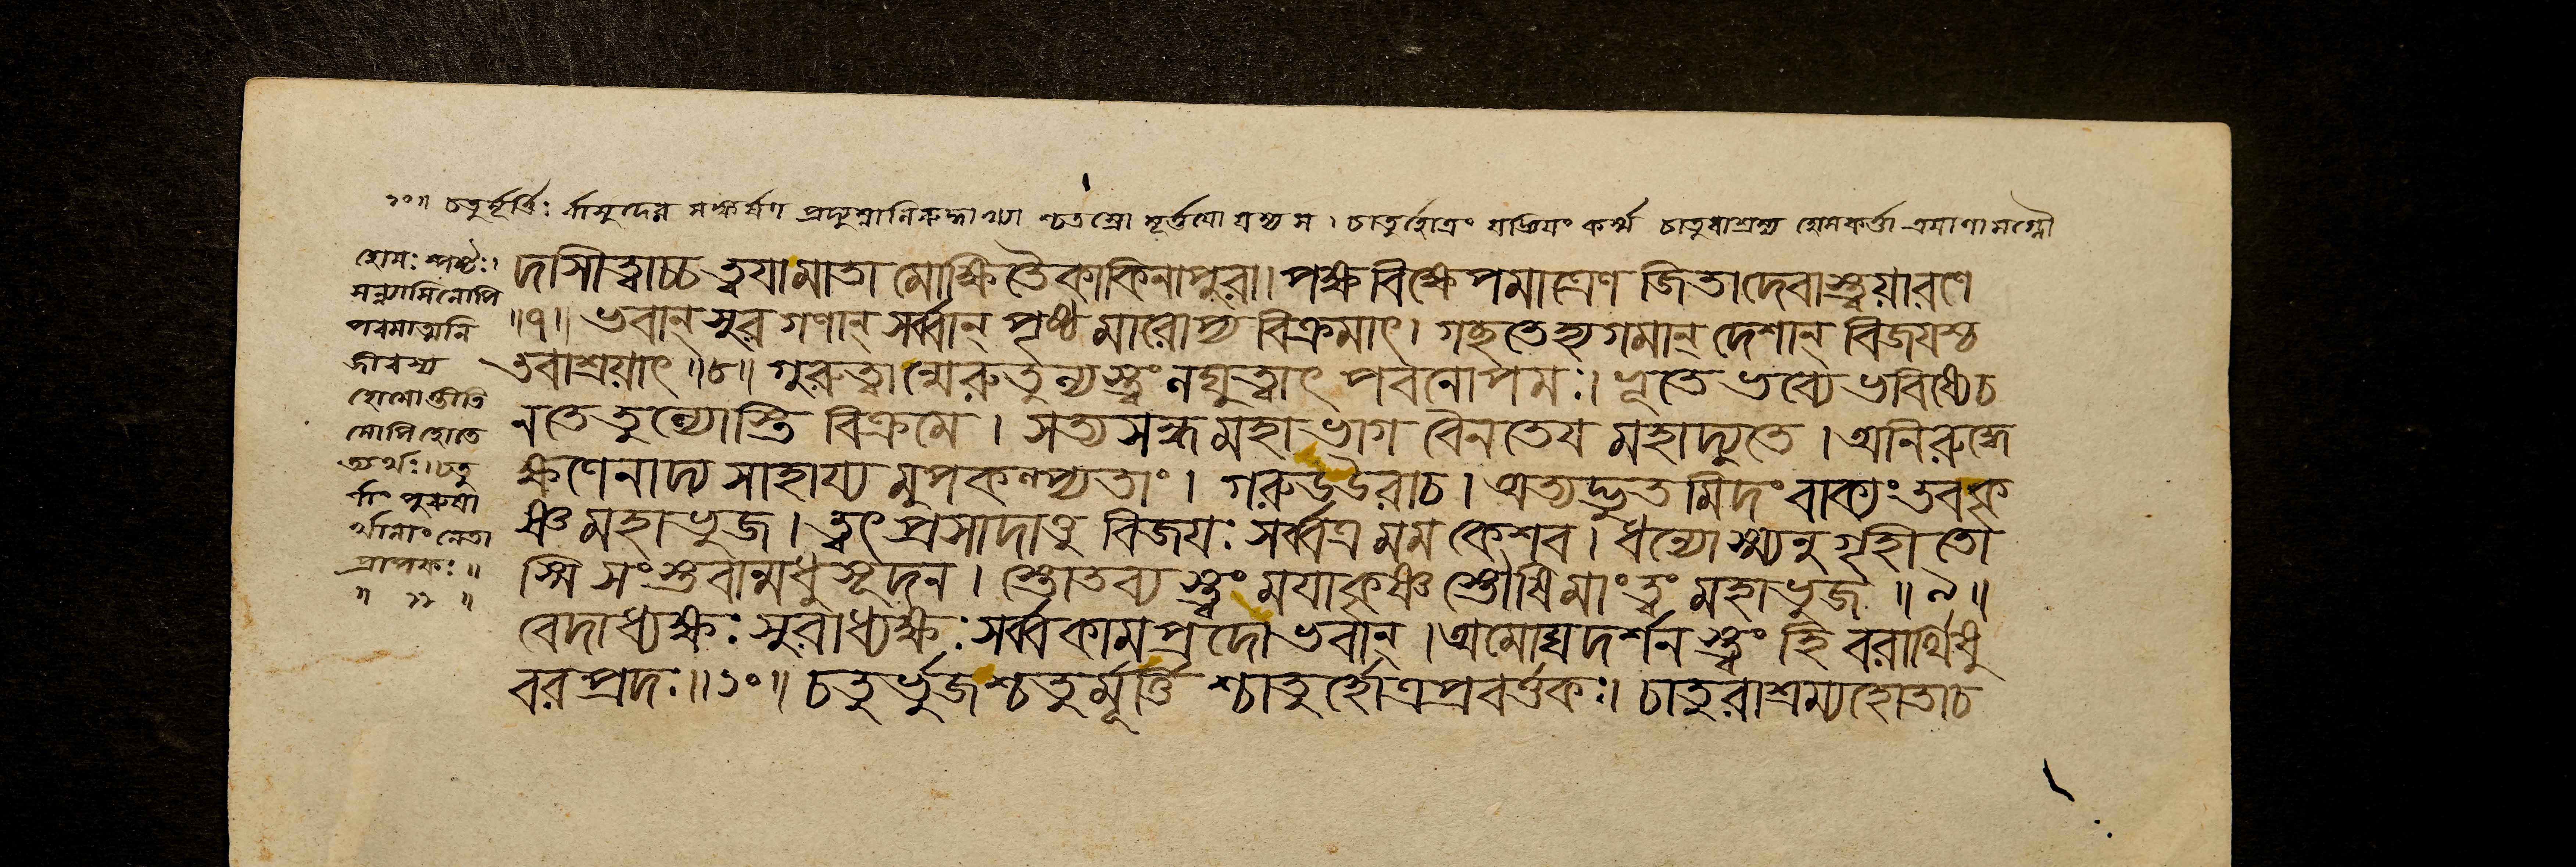 ১০॥ চতুর্মূর্ত্তিঃ র্বাসুদেব সঙ্কর্ষণ প্রদ্যুম্নানিরুদ্ধাখ্যা শ্চতস্রো মূর্ত্তযো যস্য স। চাতুর্হোত্রং যজ্ঞিযং কর্ম্ম চাতুরাশ্রম্য হোমকর্ত্তা
হোমঃ স্পষ্টঃ।
সন্ন্যাসিনোপি
পরমাত্মনি
জীবস্য
হোমোস্তীতি
সোপি হোতে
ত্যর্থঃ। চতু
র্বাং পুরুষা
র্থানাং নেতা
প্রাপকঃ॥
॥ ১১ ॥
দাসীত্বাচ্চ ত্বযামাতা মোক্ষিতৈকাকিনাপুরা। পক্ষবিক্ষেপমাত্রেণ জিতাদেবাস্ত্বয়ারণে
॥৭॥ ভবান্ সুর গণান্ সর্ব্বান্ পৃষ্ঠ মারোপ্য বিক্রমাৎ। গচ্ছতেহ্যগমান্ দেশান্ বিজযশ্চ
তবাশ্রয়াৎ॥৮॥ গুরুত্বান্মেরুতুল্যস্ত্বং লঘুত্বাৎ পবনোপমঃ। ভূতে ভব্যে ভবিষ্যেচ
নতে তুল্যোস্তি বিক্রমে। সত্যসন্ধ মহাভাগ বৈনতেয মহাদ্যুতে। অনিরুদ্ধে
ক্ষণেনাদ্য সাহায্য মুপকল্প্যতাং। গরুডউবাচ। অত্যদ্ভুত মিদং বাক্যং তবকৃ
ষ্ণ মহাভুজ। ত্বৎ প্রসাদাত্তু বিজযঃ সর্ব্বত্র মম কেশব। ধন্যোস্ম্যনুগৃহীতো
স্মি সংস্তবান্মধুসূদন। স্তোতব্য স্ত্বং মযাকৃষ্ণ স্তৌষি মাং ত্বং মহাভুজ ॥৯॥
বেদাধ্যক্ষঃ সুরাধ্যক্ষঃ সর্ব্বকামপ্রদো ভবান্। অমোঘদর্শন স্ত্বং হি বরার্থিষু
বর প্রদঃ॥১০॥ চতুর্ভুজশ্চতুর্মূর্ত্তি শ্চাতুর্হোত্রপ্রবর্ত্তকঃ। চাতুরাশ্রম্যহোতাচ